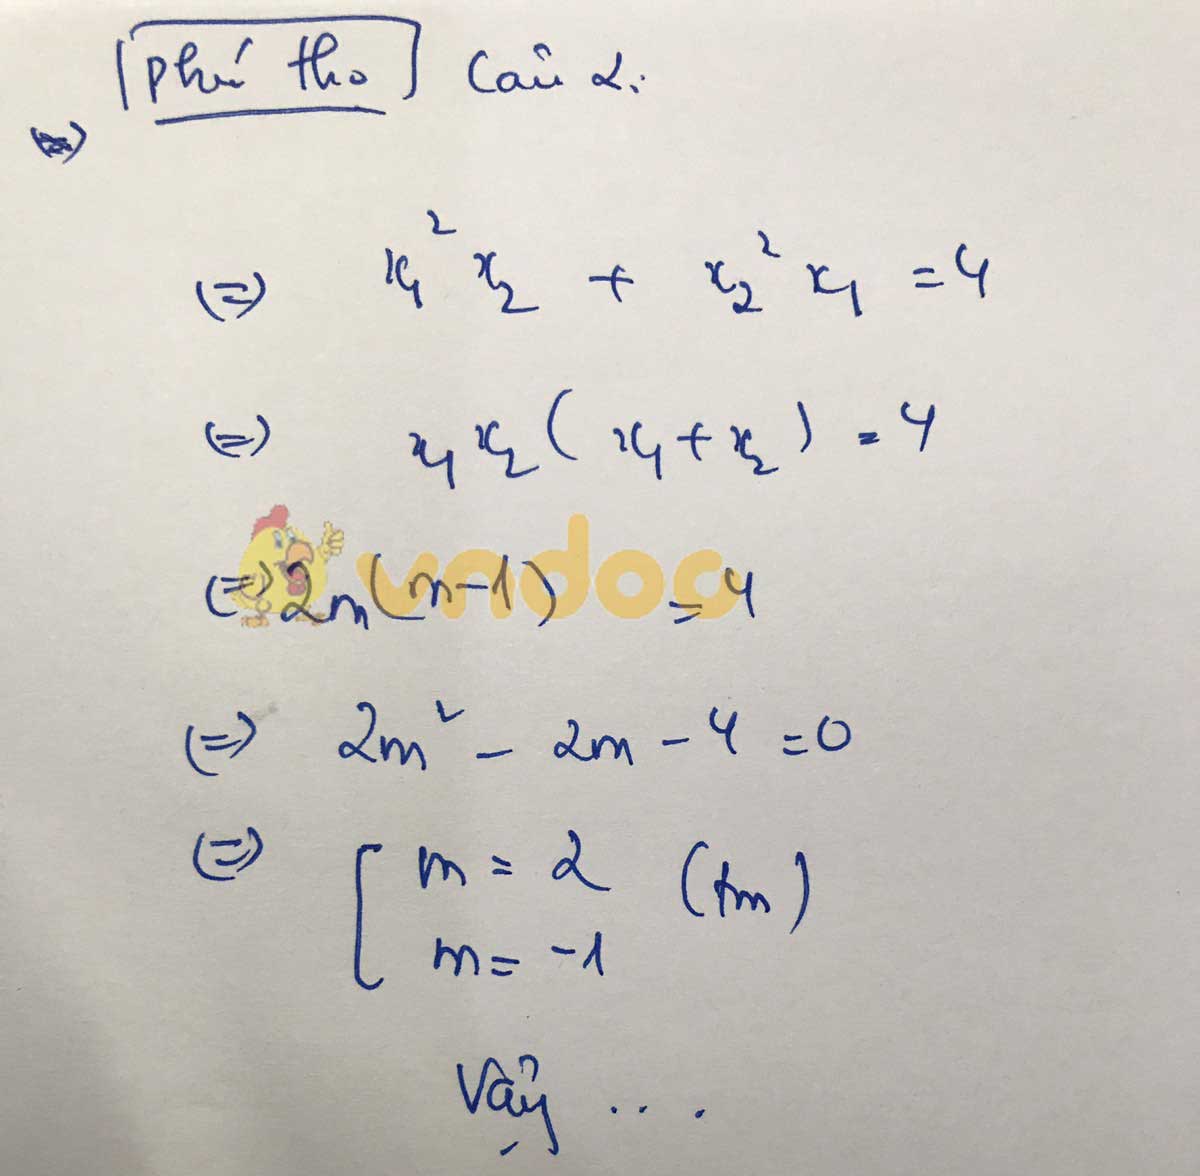 Phú thọ Câu 2:
(=) x₁² x₂ + x₂² x₁ = 4
(=) x₁ x₂ ( x₁ + x₂ ) = 4
vndoc
(=) 2m(m-1) = 4
(=) 2m² - 2m - 4 = 0
(=) [ m = 2 (tm)
m = -1
Vậy ....